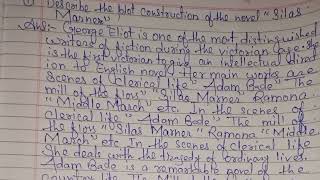 Describe the plot construction of the novel "Silas
Marner"
Ans:- George Eliot is one of the most distinguished
writers of fiction during the victorian age. She
is the first victorian to give an intellectual direct
ion to English novel. Her main works are
Scenes of clerical life "Adam Bede" The
mill of the floss "Silas Marner Ramona
"Middle March" etc. In the scenes of
clerical life "Adam Bede" The mill of
the floss "Silas Marner" Ramona "Middle
March" etc In the scenes of clerical life
She deals with the tragedy of ordinary lives.
Adam Bede is a remarkable novel of the